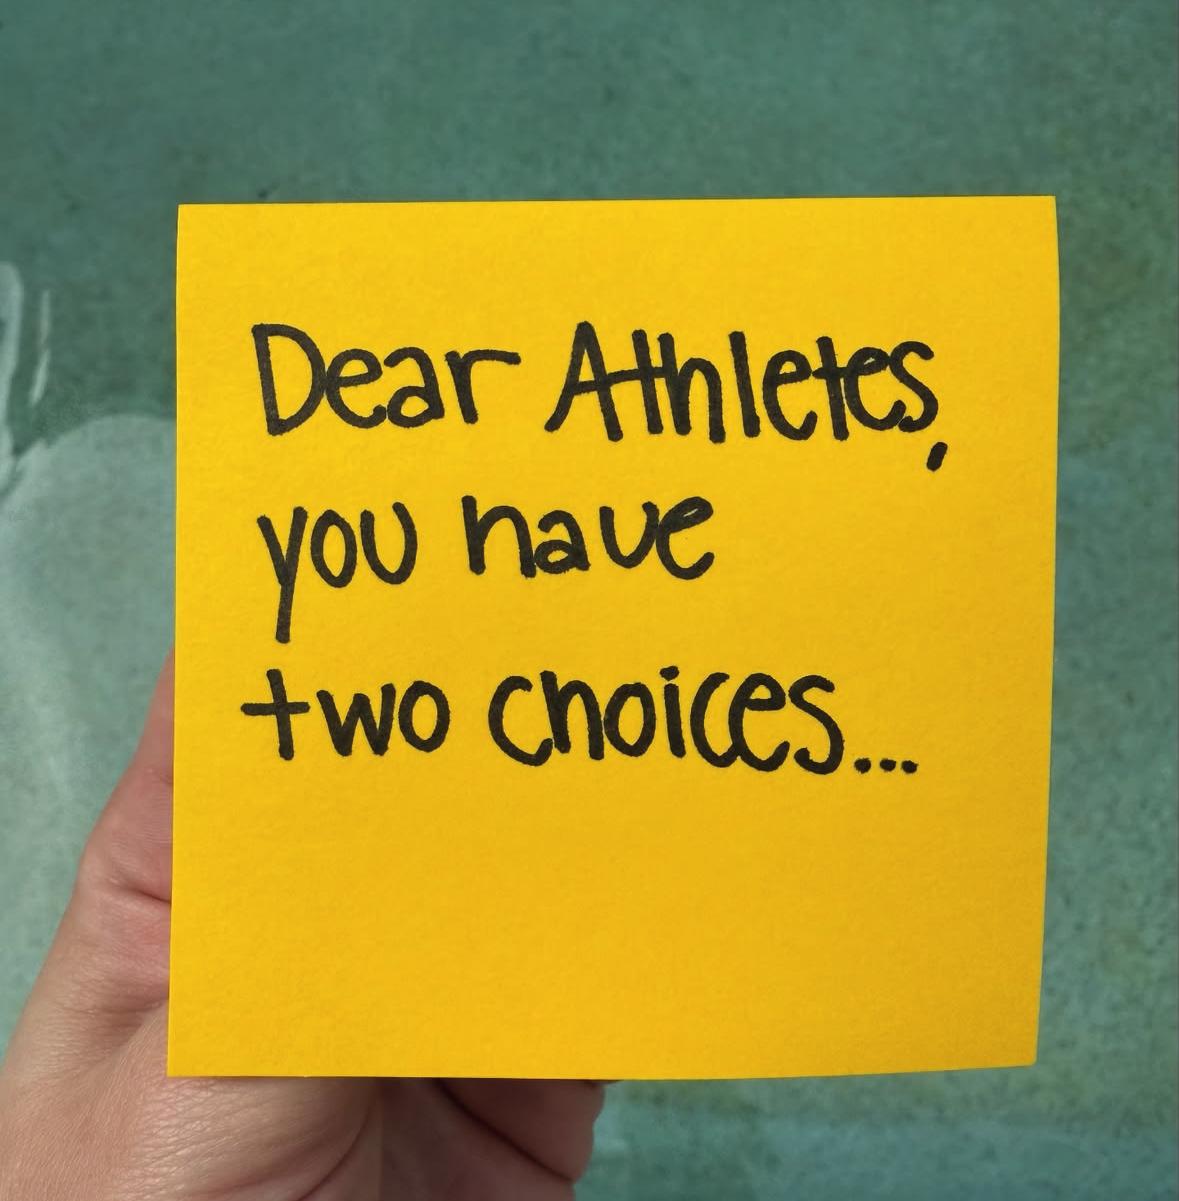 Dear Athletes,
you have
two choices...